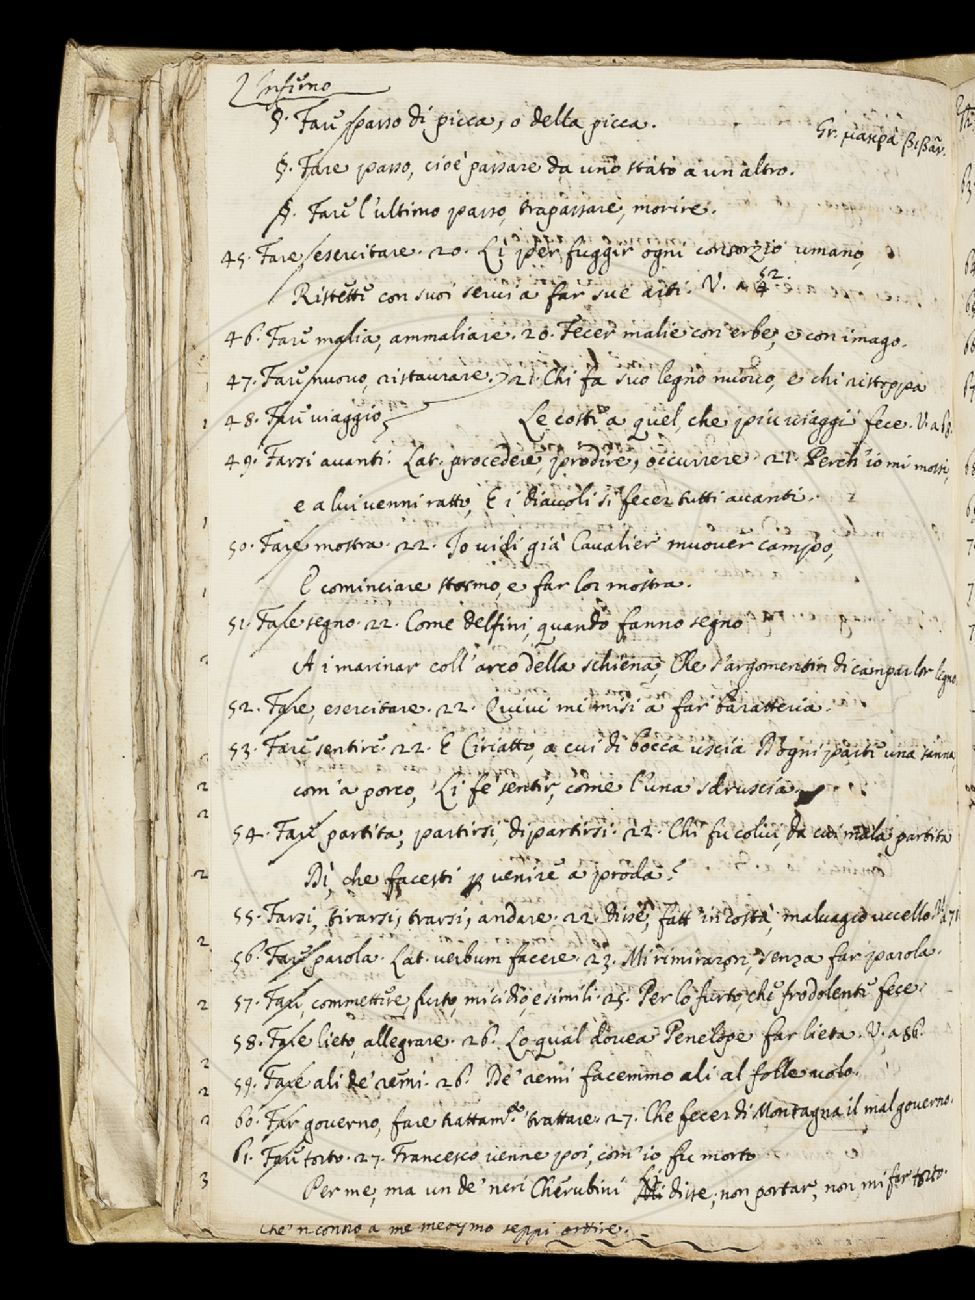 L'Inferno
§. Fare spasso di picca, o della picca.
Gr. μακρὰ βιβᾶν.
§. Fare passo, cioè passare da uno stato a un altro.
§. Fare l'ultimo passo, trapassare, morire.
45. Fare, esercitare. 20. Lì per fuggir ogni consorzio umano,
Ristette con suoi servi a far sue arti. V. a 52.
46. Fare malia, ammaliare. 20. Fecer malie con erbe, e con imago.
47. Fare nuovo, ristaurare. 21. Chi fa suo legno nuovo, e chi ristoppa
48. Fare viaggio Le coste a quel, che più viaggi fece. V. a
49. Farsi avanti. Lat. procedere, prodire, occurrere. 21. Perch' io mi mossi,
e a lui venni ratto, E i diavoli si fecer tutti avanti.
50. Fare mostra. 22. Io vidi già Cavalier muover campo,
E cominciare stormo, e far lor mostra.
51. Fare segno. 22. Come delfini, quando fanno segno
A i marinar coll' arco della schiena, Che s'argomentin di campar lor legno
52. Fare, esercitare. 22. Quivi mi misi a far baratteria.
53. Fare sentire. 22. E Ciriatto, a cui di bocca uscia D'ogni parte una sanna,
com' a porco, Li fe' sentir, come l'una sdruscia.
54. Fare partita, partirsi, dipartirsi. 22. Chi fu colui, da cui mala partita
Dì, che facesti p venire a proda?
55. Farsi, tirarsi, trarsi, andare. 22. disse, fatt' in costà, malvagio uccello. V. a 71
56. Fare parola. Lat. verbum facere. 23. Mi rimiraron, senza far parola.
57. Fare, commettere, furto, micidio, e simili. 25. Per lo furto, che frodolente fece.
58. Fare lieto, allegrare. 26. Lo qual dovea Penelope far lieta. V. a 86.
59. Fare ali de' remi. 26. De' remi facemmo ali al folle volo.
60. Far governo, fare trattamto, trattare. 27. Che fecer di Montagna il mal governo.
61. Fare torto. 27. Francesco venne poi, com' io fu morto
Per me, ma un de' neri Cherubini Li disse, non portar, non mi far torto.